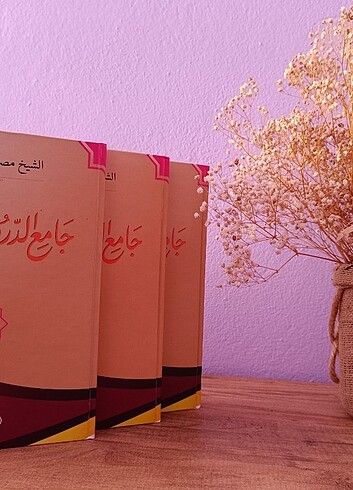 الشيخ مص
جَامِعُ الدّرُ
الش
جَامِعُ ال
جَامِع